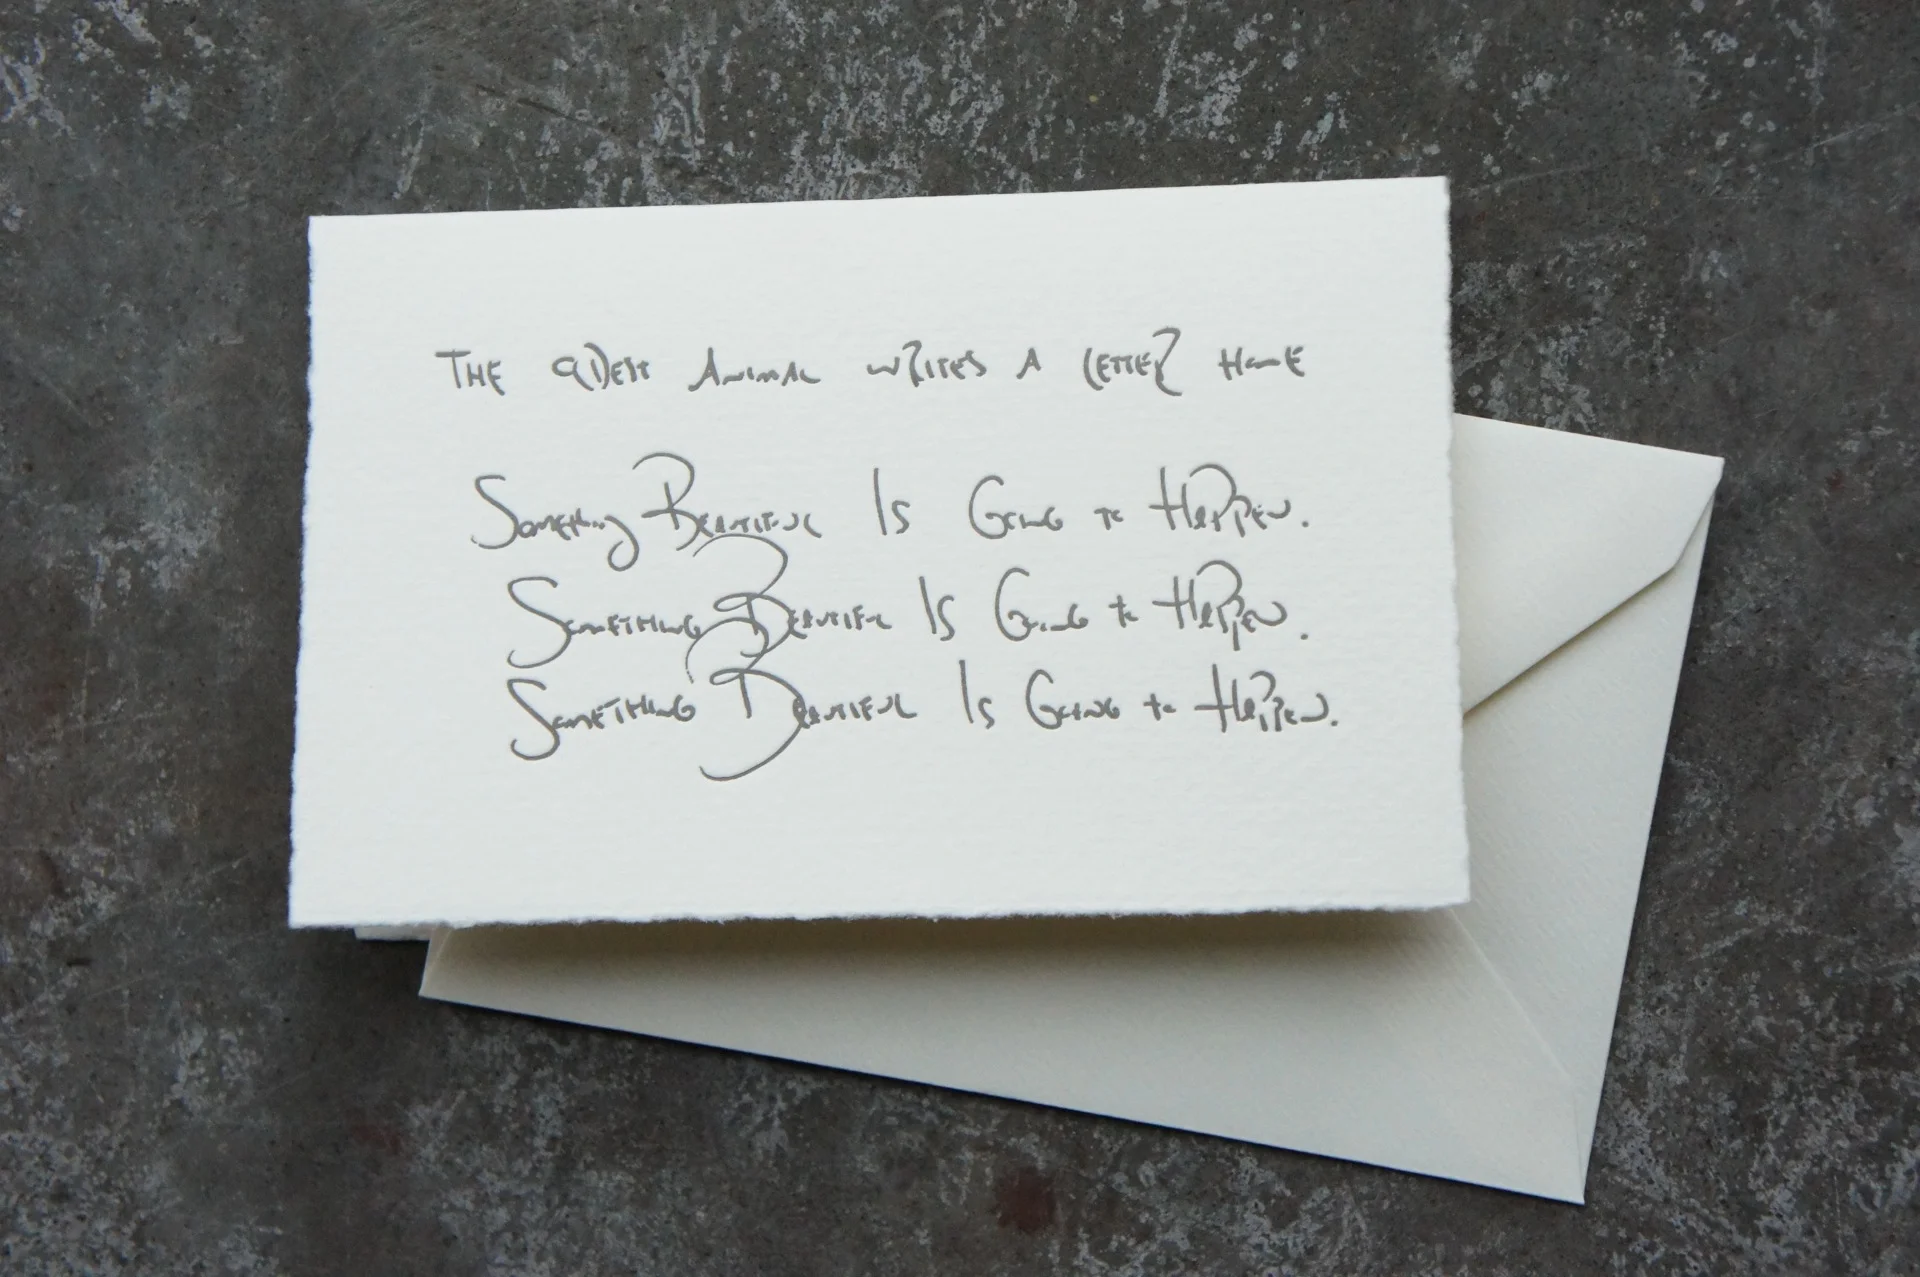 THE OLDEST ANIMAL WRITES A LETTER HOME
SOMETHING BEAUTIFUL IS GOING TO HAPPEN.
SOMETHING BEAUTIFUL IS GOING TO HAPPEN.
SOMETHING BEAUTIFUL IS GOING TO HAPPEN.